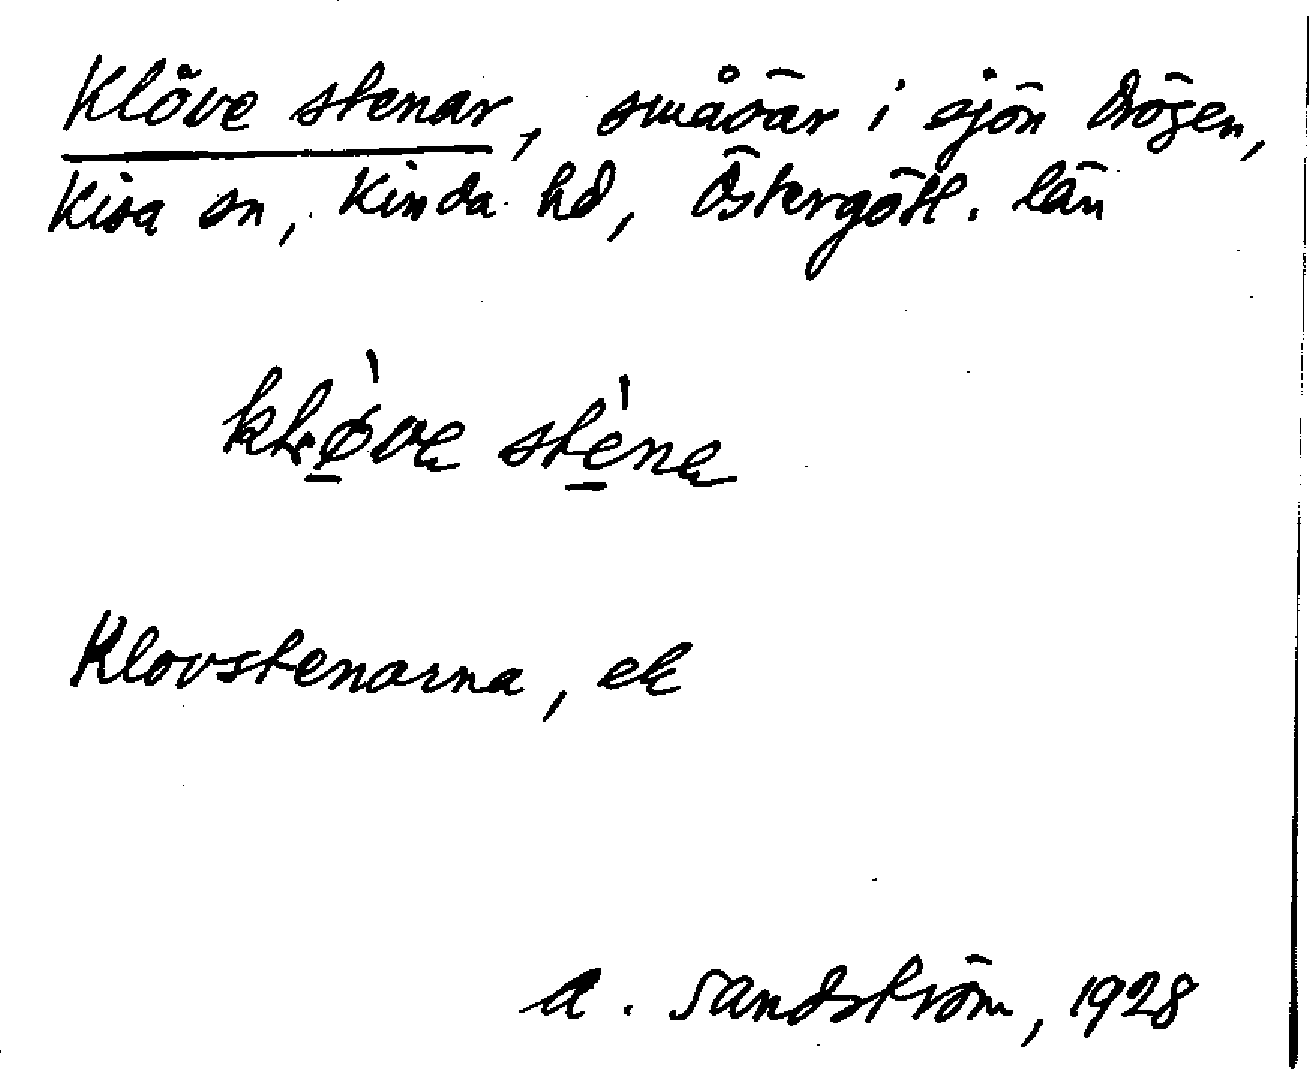 Klöve stenar, småöar i sjön Drögen,
Kisa sn, Kinda hd, Östergötl. län
stena
Klovstenarna, ek
A. Sandström, 1928